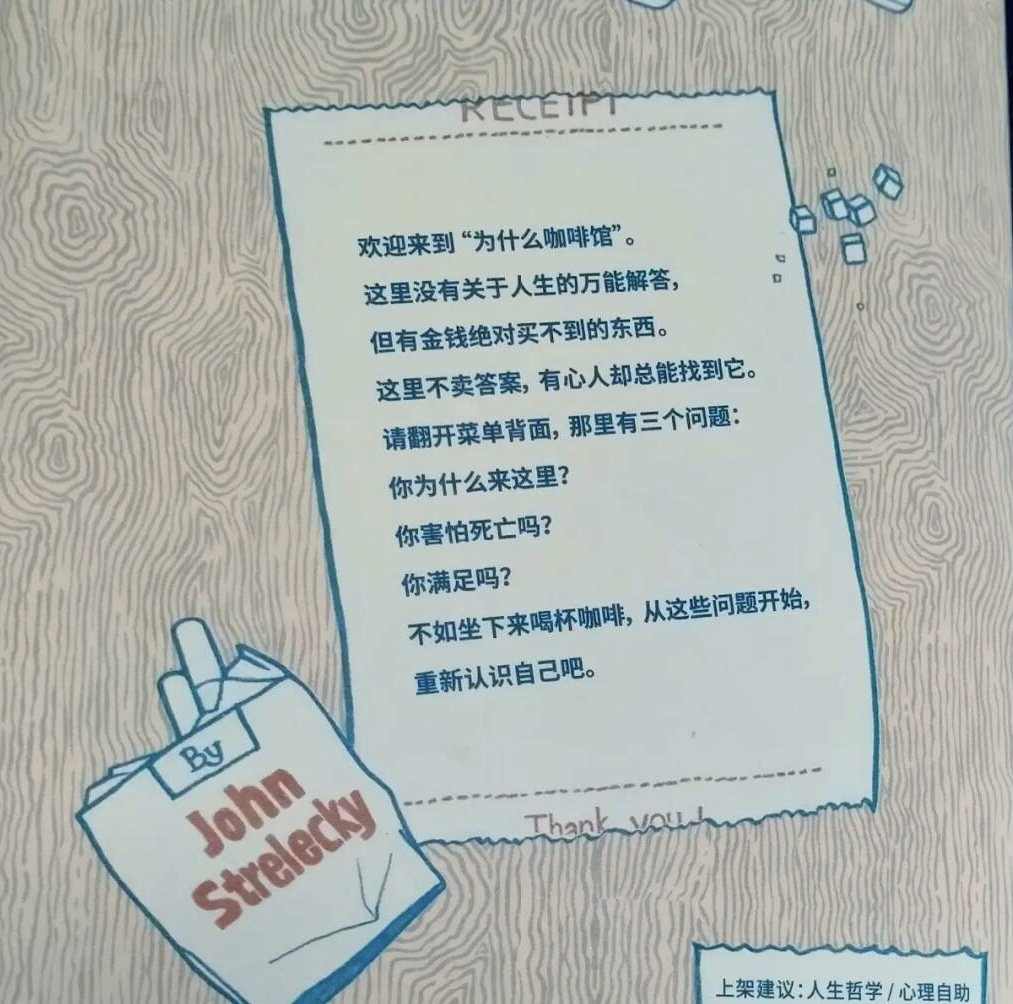 RECEIPT
欢迎来到“为什么咖啡馆”。
这里没有关于人生的万能解答，
但有金钱绝对买不到的东西。
这里不卖答案，有心人却总能找到它。
请翻开菜单背面，那里有三个问题：
你为什么来这里？
你害怕死亡吗？
你满足吗？
不如坐下来喝杯咖啡，从这些问题开始，
重新认识自己吧。
Thank you!
By
John
Strelecky
上架建议：人生哲学/心理自助